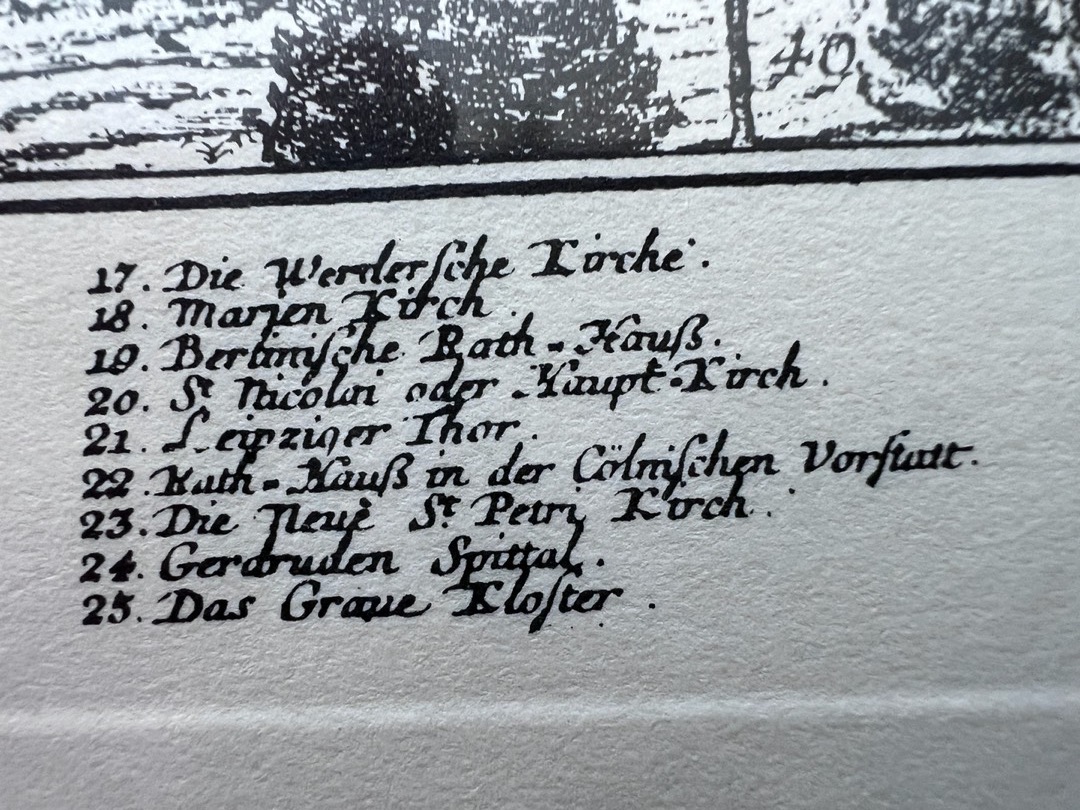 40
17. Die Werderſche Kirche.
18. Marjen Kirch.
19. Berliniſche Rath-Hauß.
20. St Nicolai oder Haupt-Kirch.
21. Leipziger Thor.
22. Rath-Hauß in der Cölniſchen Vorſtatt.
23. Die Neue St Petri Kirch.
24. Gerdruden Spittal.
25. Das Graue Kloſter.